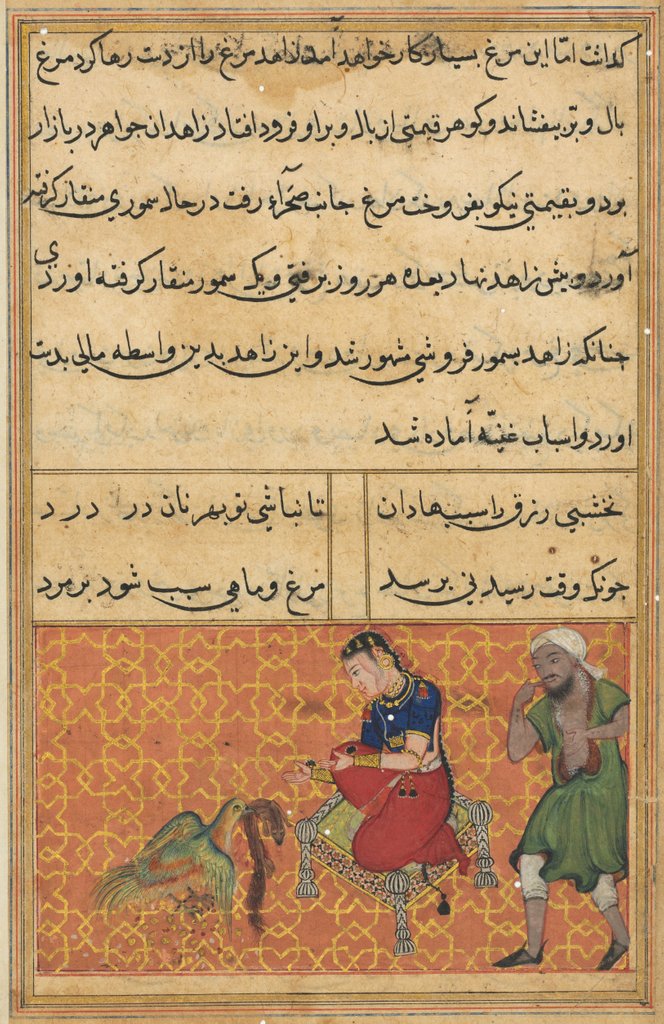 کداشت امّا این مرغ بسیار کار خواهد آمد زاهد مرغ را از دست رها کرد مرغ
بال و پر بیفشاند و کوهر قیمتی از بال و پر او فرود افتاد زاهد ان جواهر در بازار
برد و بقیمتی نیکو بفروخت مرغ جانب صحراء رفت در حال سموری منقار کرفته
آورد و پیش زاهد نهاد بعده هر روز برفتی و یک سمور منقار کرفته اوردی
چنانکه زاهد بسمور فروشی مشهور شد و این زاهد بدین واسطه مالی بدست
اورد و اسباب غنیّه آماده شد
نخشبی رزق را سببها دان تا نباشی تو بهر نان در درد
چونکه وقت رسیدنی برسد مرغ و ماهی سبب شود بر مرد